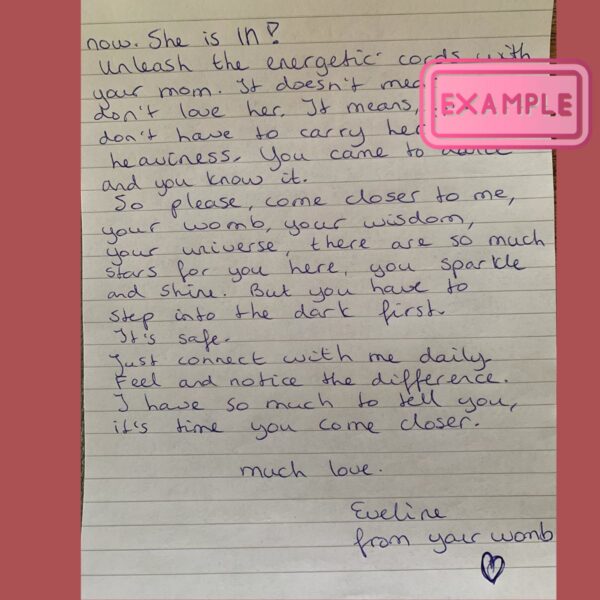 now. She is IN!
Unleash the energetic cords with
your mom. It doesn't
don't love her. It means,
don't have to carry her
heaviness. You came to
and you know it.
So please, come closer to me,
your womb, your wisdom,
your universe, there are so much
stars for you here, you sparkle
and shine. But you have to
step into the dark first.
It's safe.
Just connect with me daily
Feel and notice the difference.
I have so much to tell you,
it's time you come closer.
much love.
Eveline
from your womb
EXAMPLE